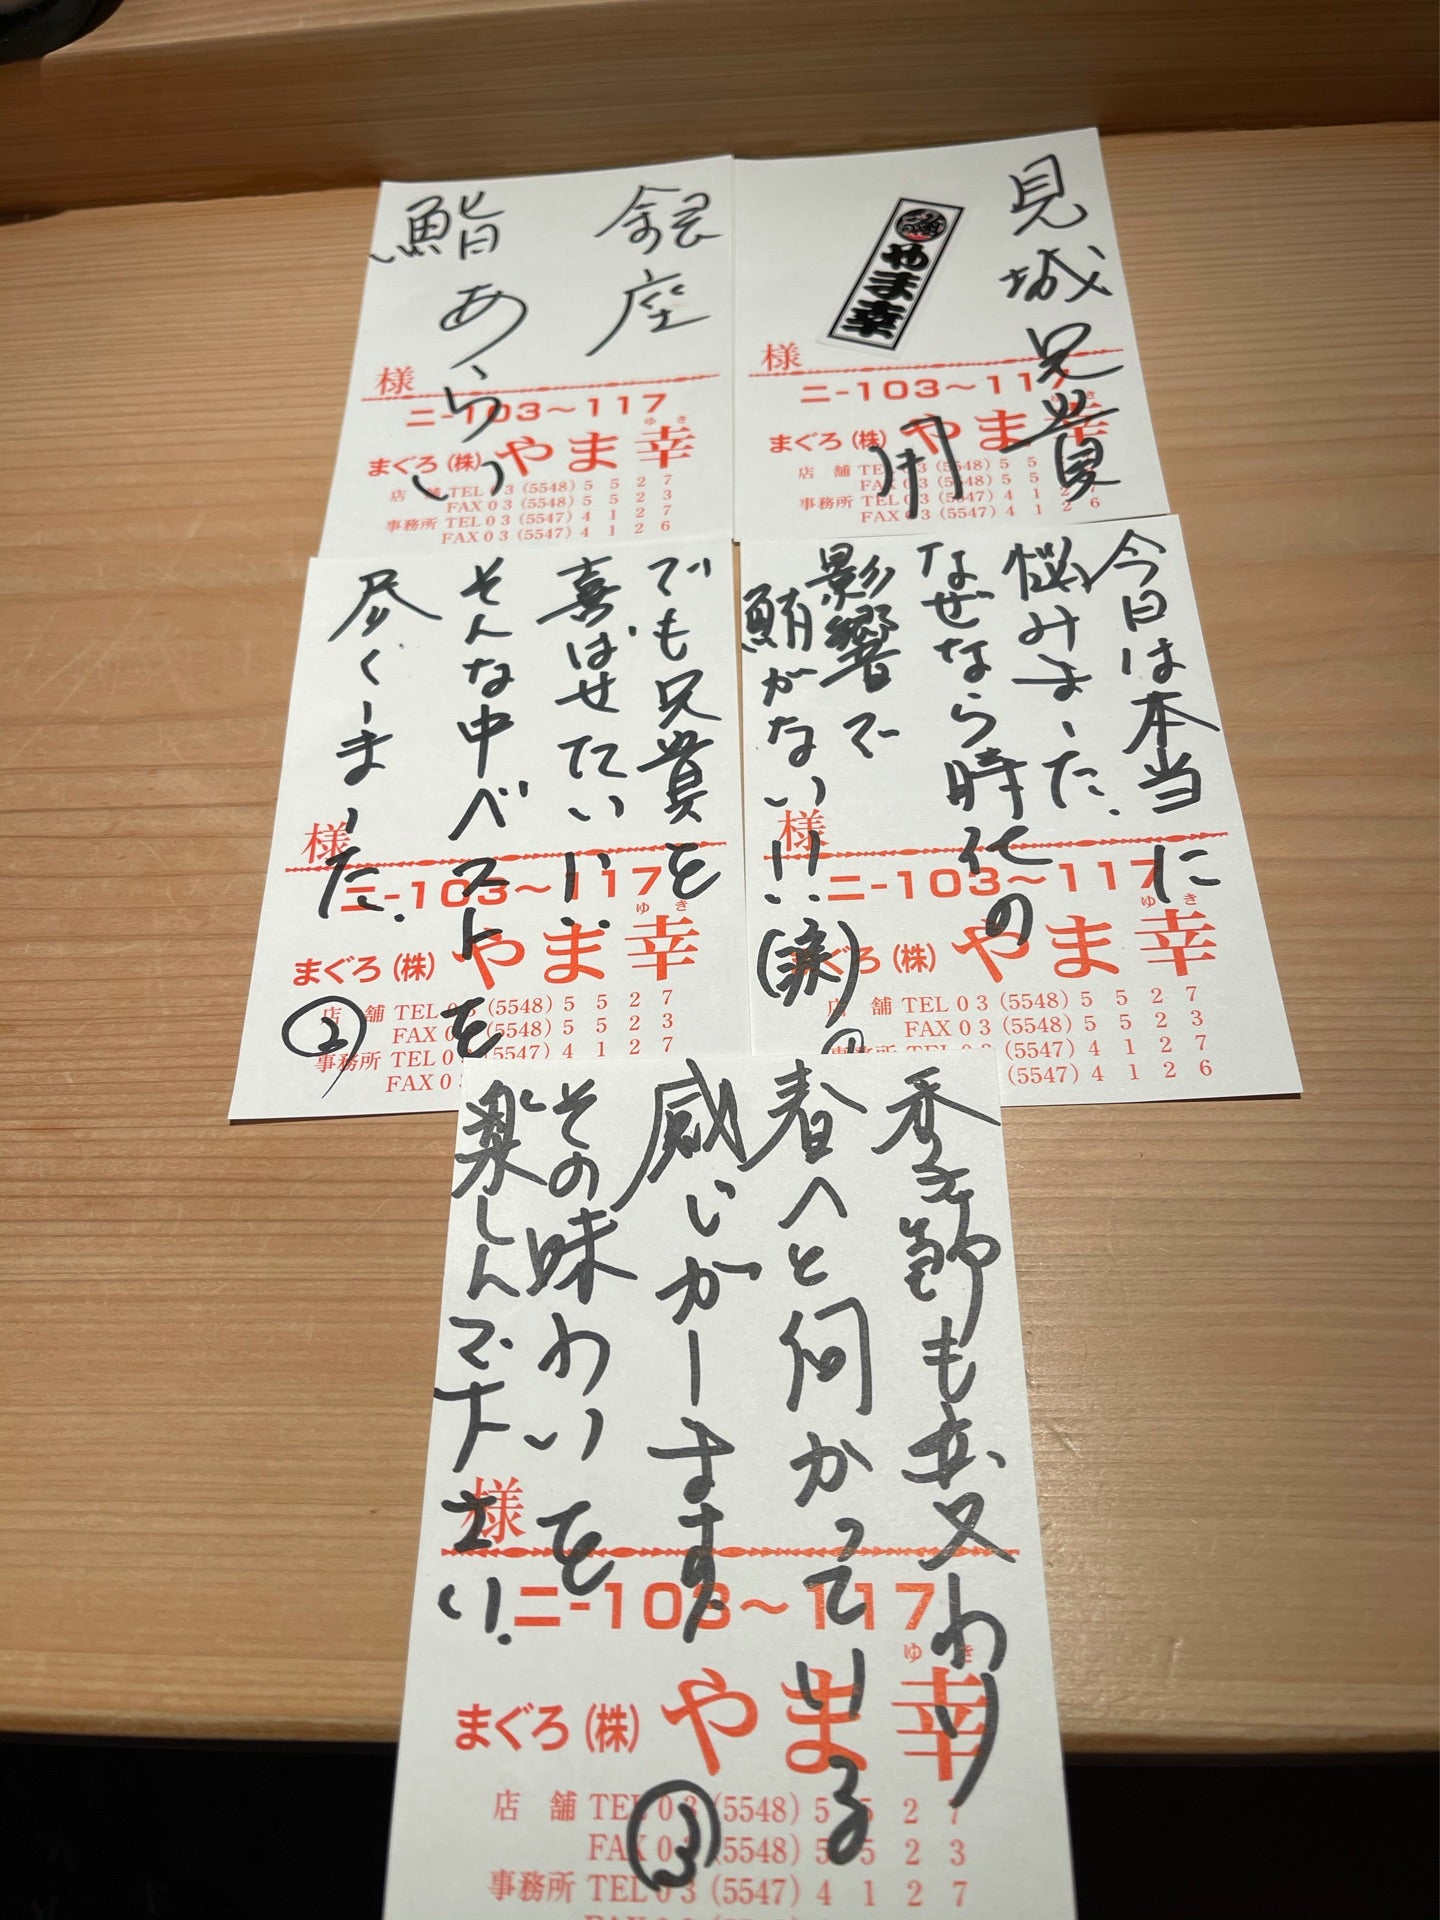 見城兄貴
用
やま幸
様
ニ-103〜117
ゆき
まぐろ(株)やま幸
店舗 TEL03(5548)5527
FAX03(5548)5523
事務所 TEL03(5547)4127
FAX03(5547)4126
銀座
鮨あらい
様
ニ-103〜117
ゆき
まぐろ(株)やま幸
店舗 TEL03(5548)5527
FAX03(5548)5523
事務所 TEL03(5547)4127
FAX03(5547)4126
今日は本当に
悩みました.
なぜなら時代の
影響で
鮪がない!!(涙)
①
様
ニ-103〜117
ゆき
まぐろ(株)やま幸
店舗 TEL03(5548)5527
FAX03(5548)5523
事務所 TEL03(5547)4127
(5547)4126
でも兄貴を
喜ばせたい!!
そんな中ベストを
尽くしました.
②
様
ニ-103〜117
ゆき
まぐろ(株)やま幸
店舗 TEL03(5548)5527
FAX03(5548)5523
事務所 TEL03(5547)4127
FAX03
季節も変わり
春へと向かっている
感じがします
その味わいを
楽しんで下さい.
③
様
ニ-103〜117
ゆき
まぐろ(株)やま幸
店舗 TEL03(5548)5527
FAX03(5548)5523
事務所 TEL03(5547)4127